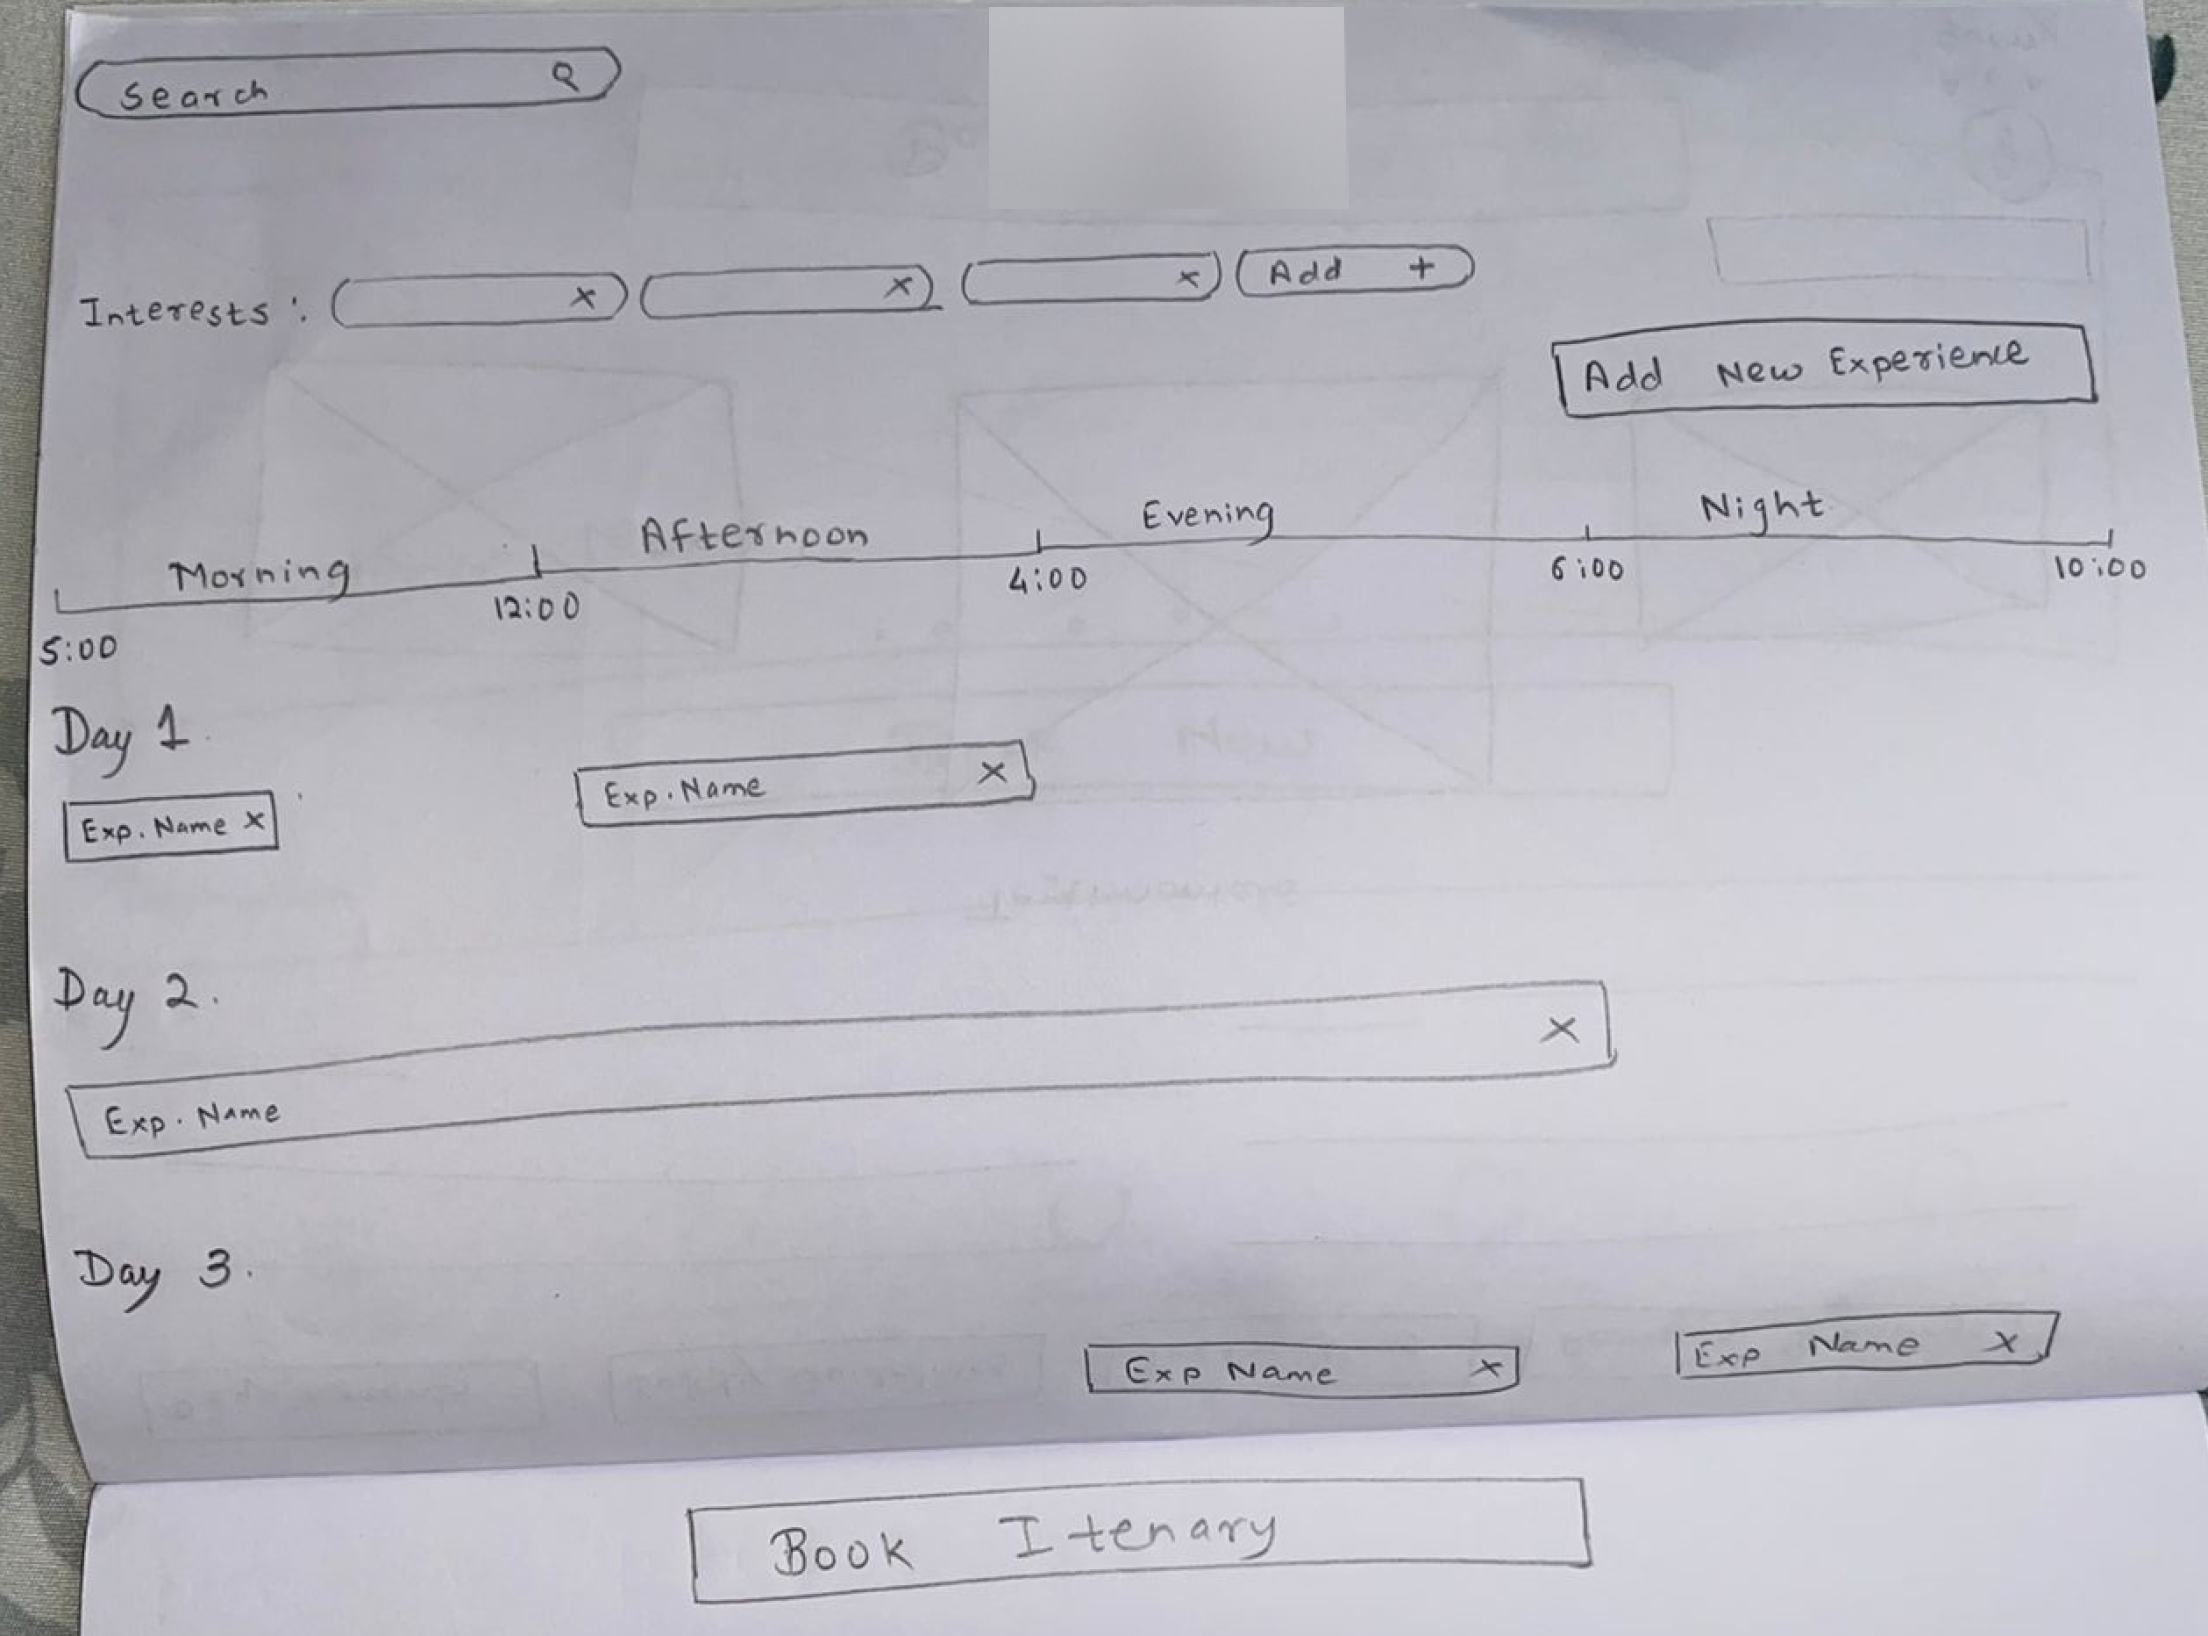 Search
Interests :
x
x
x
Add +
Add New Experience
Morning
Afternoon
Evening
Night
5:00
12:00
4:00
6:00
10:00
Day 1
Exp. Name x
Exp. Name x
Day 2.
Exp. Name x
Day 3.
Exp Name x
Exp Name x
Book Itenary